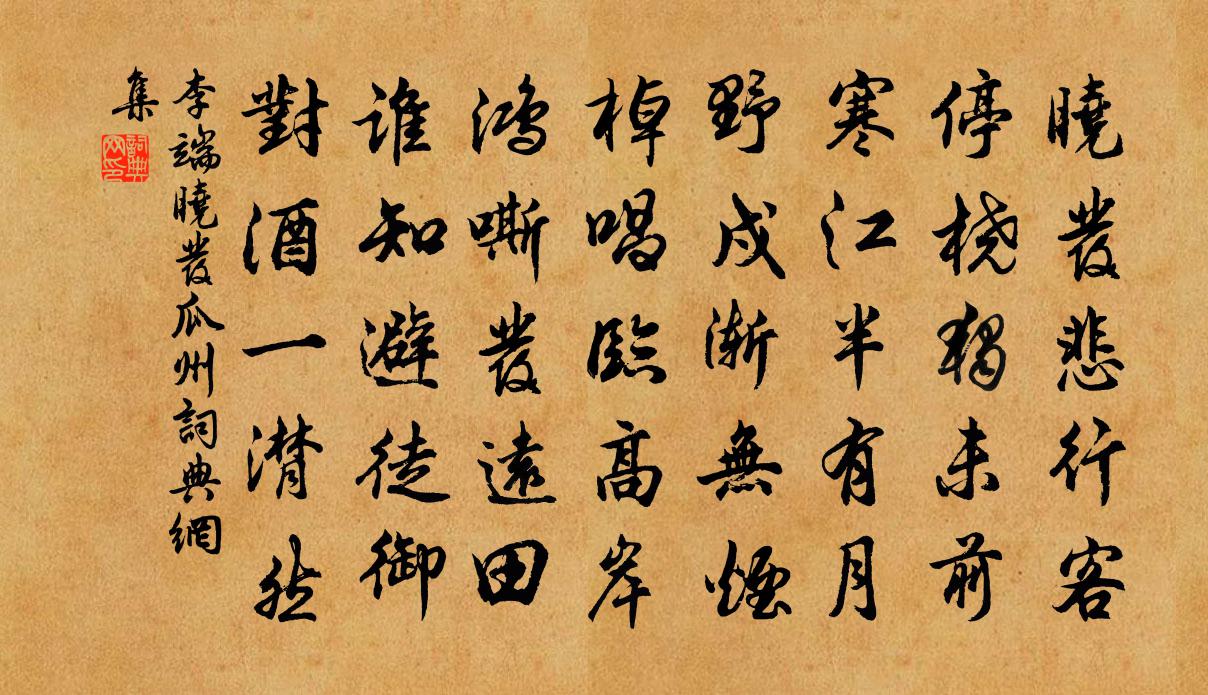 曉發悲行客
停橈獨未前
寒江半有月
野戍漸無煙
棹唱臨高岸
鴻嘶發遠田
誰知避徒御
對酒一潸然
李端曉發瓜州詞典網
集
詞典网印